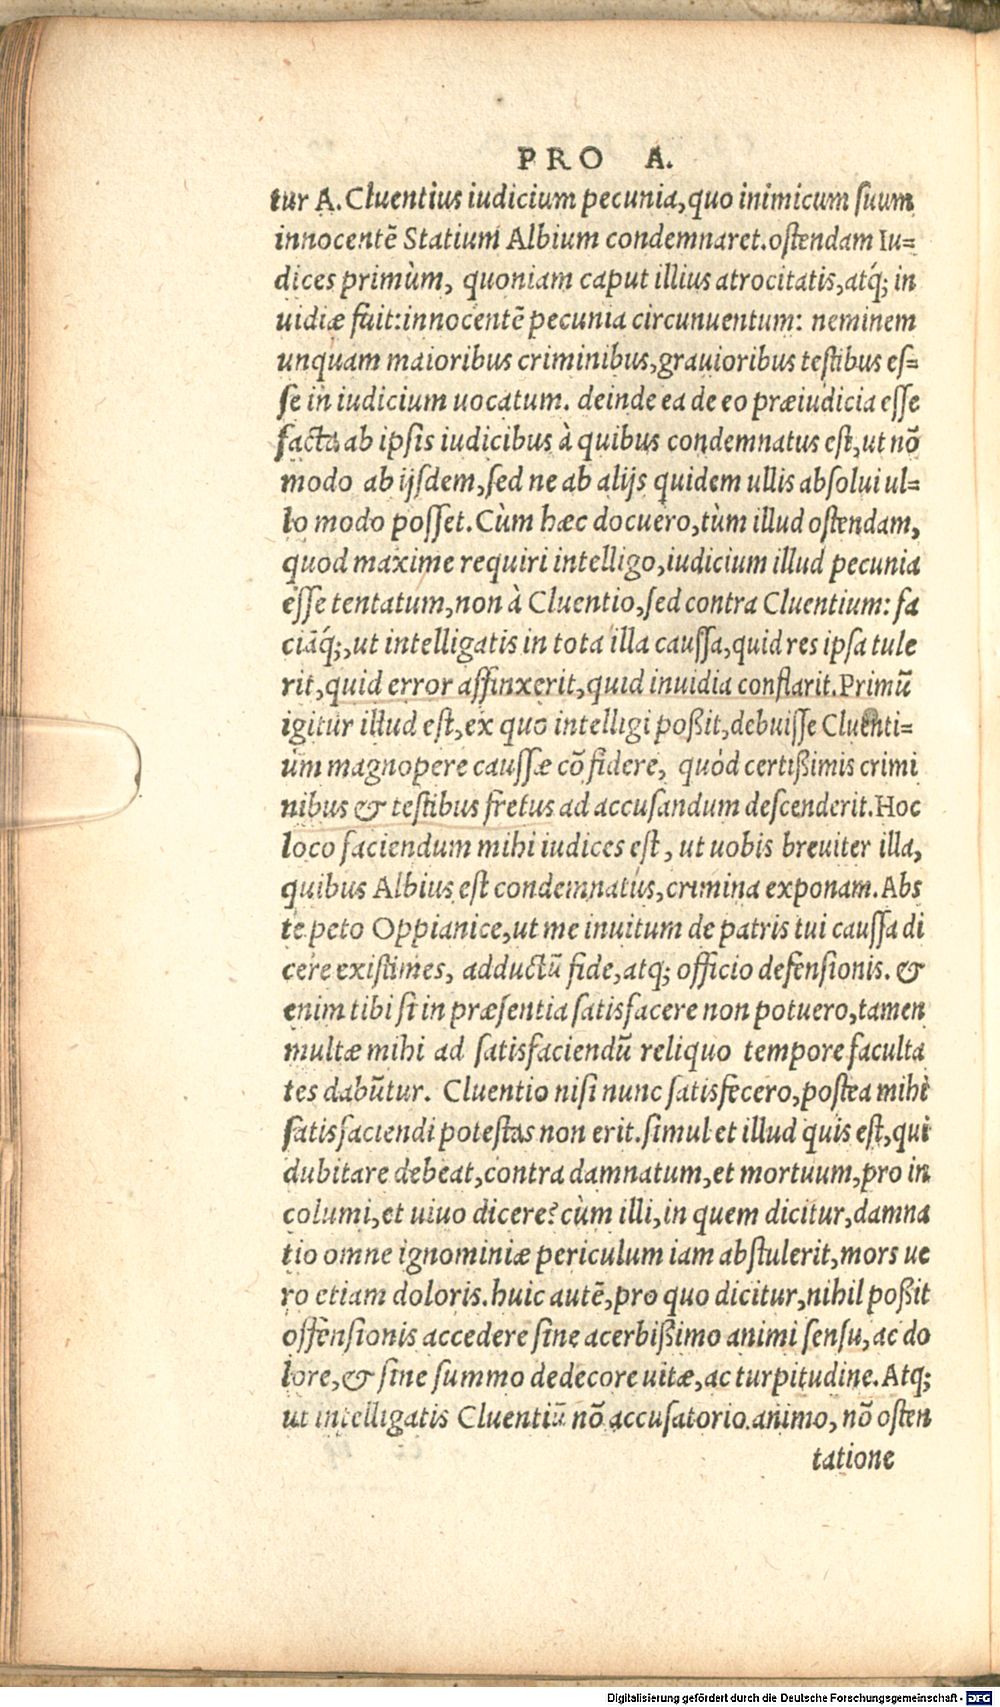 PRO A.
tur A. Cluentius iudicium pecunia, quo inimicum suum
innocentē Statium Albium condemnaret. ostendam Iu-
dices primùm, quoniam caput illius atrocitatis, atq́; in
uidiæ fuit: innocentē pecunia circunuentum: neminem
unquam maioribus criminibus, grauioribus testibus es-
se in iudicium uocatum. deinde ea de eo præiudicia esse
facta ab ipsis iudicibus à quibus condemnatus est, ut nō
modo ab ijsdem, sed ne ab alijs quidem ullis absolui ul-
lo modo posset. Cùm hæc docuero, tùm illud ostendam,
quod maxime requiri intelligo, iudicium illud pecunia
esse tentatum, non à Cluentio, sed contra Cluentium: fa
ciāq́;, ut intelligatis in tota illa caussa, quid res ipsa tule
rit, quid error affinxerit, quid inuidia conflarit. Primū
igitur illud est, ex quo intelligi poßit, debuisse Cluenti-
um magnopere caussæ cō fidere, quòd certißimis crimi
nibus & testibus fretus ad accusandum descenderit. Hoc
loco faciendum mihi iudices est, ut uobis breuiter illa,
quibus Albius est condemnatus, crimina exponam. Abs
te peto Oppianice, ut me inuitum de patris tui caussa di
cere existimes, adductū fide, atq; officio defensionis. &
enim tibi si in præsentia satisfacere non potuero, tamen
multæ mihi ad satisfaciendū reliquo tempore faculta
tes dabūtur. Cluentio nisi nunc satisfecero, postea mihi
satisfaciendi potestas non erit. simul et illud quis est, qui
dubitare debeat, contra damnatum, et mortuum, pro in
columi, et uiuo dicere? cùm illi, in quem dicitur, damna
tio omne ignominiæ periculum iam abstulerit, mors ue
ro etiam doloris. huic autē, pro quo dicitur, nihil poßit
offensionis accedere sine acerbißimo animi sensu, ac do
lore, & sine summo dedecore uitæ, ac turpitudine. Atq;
ut intelligatis Cluentiū nō accusatorio animo, nō osten
tatione
Digitalisierung gefördert durch die Deutsche Forschungsgemeinschaft - DFG